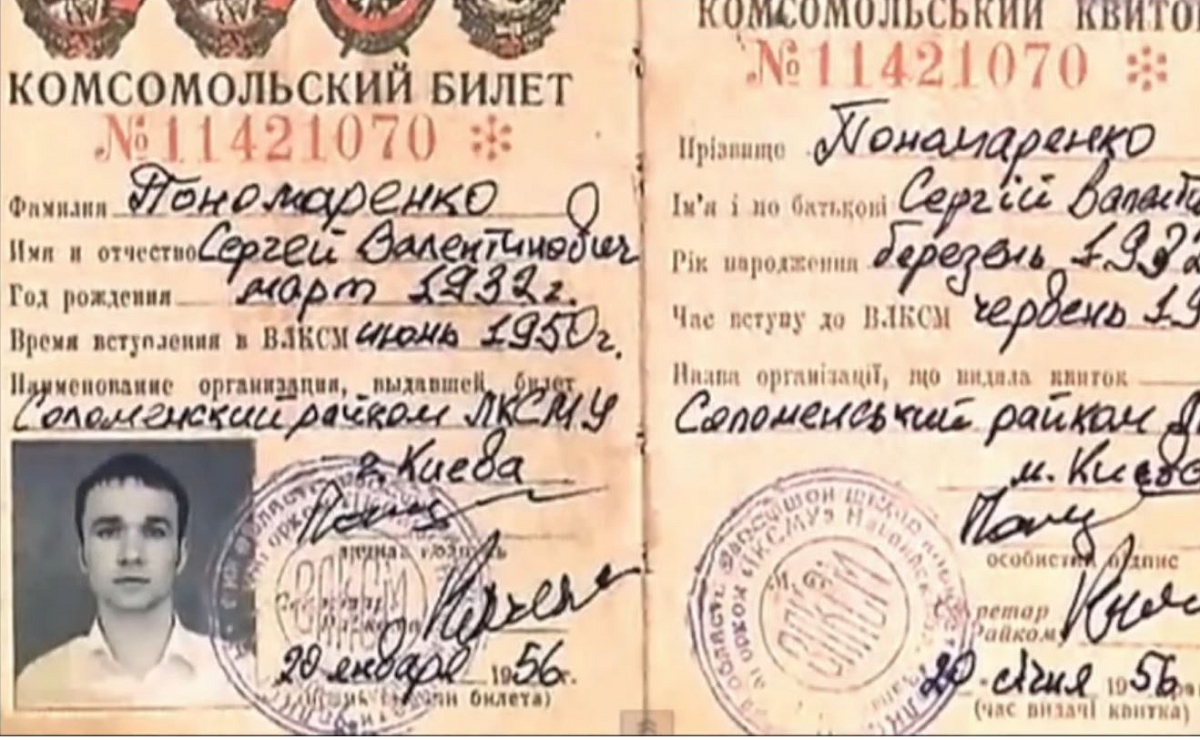 КОМСОМОЛЬСКИЙ БИЛЕТ
№11421070
Фамилия Пономаренко
Имя и отчество Сергей Валентинович
Год рождения март 1932 г.
Время вступления в ВЛКСМ июнь 1950 г.
Наименование организации, выдавшей билет
Соломенский райком ЛКСМУ
г. Киева
20 января 1956 г.
билета)
КОМСОМОЛЬСЬКИЙ КВИТО
№11421070
Прізвище Пономаренко
Ім'я і по батькові Сергій
Рік народження березень 1932
Час вступу до ВЛКСМ червень 19
Назва організації, що видала квиток
Соломенський райком
м. Києва
особистий підпис
20 січня 1956
(час видачі квитка)